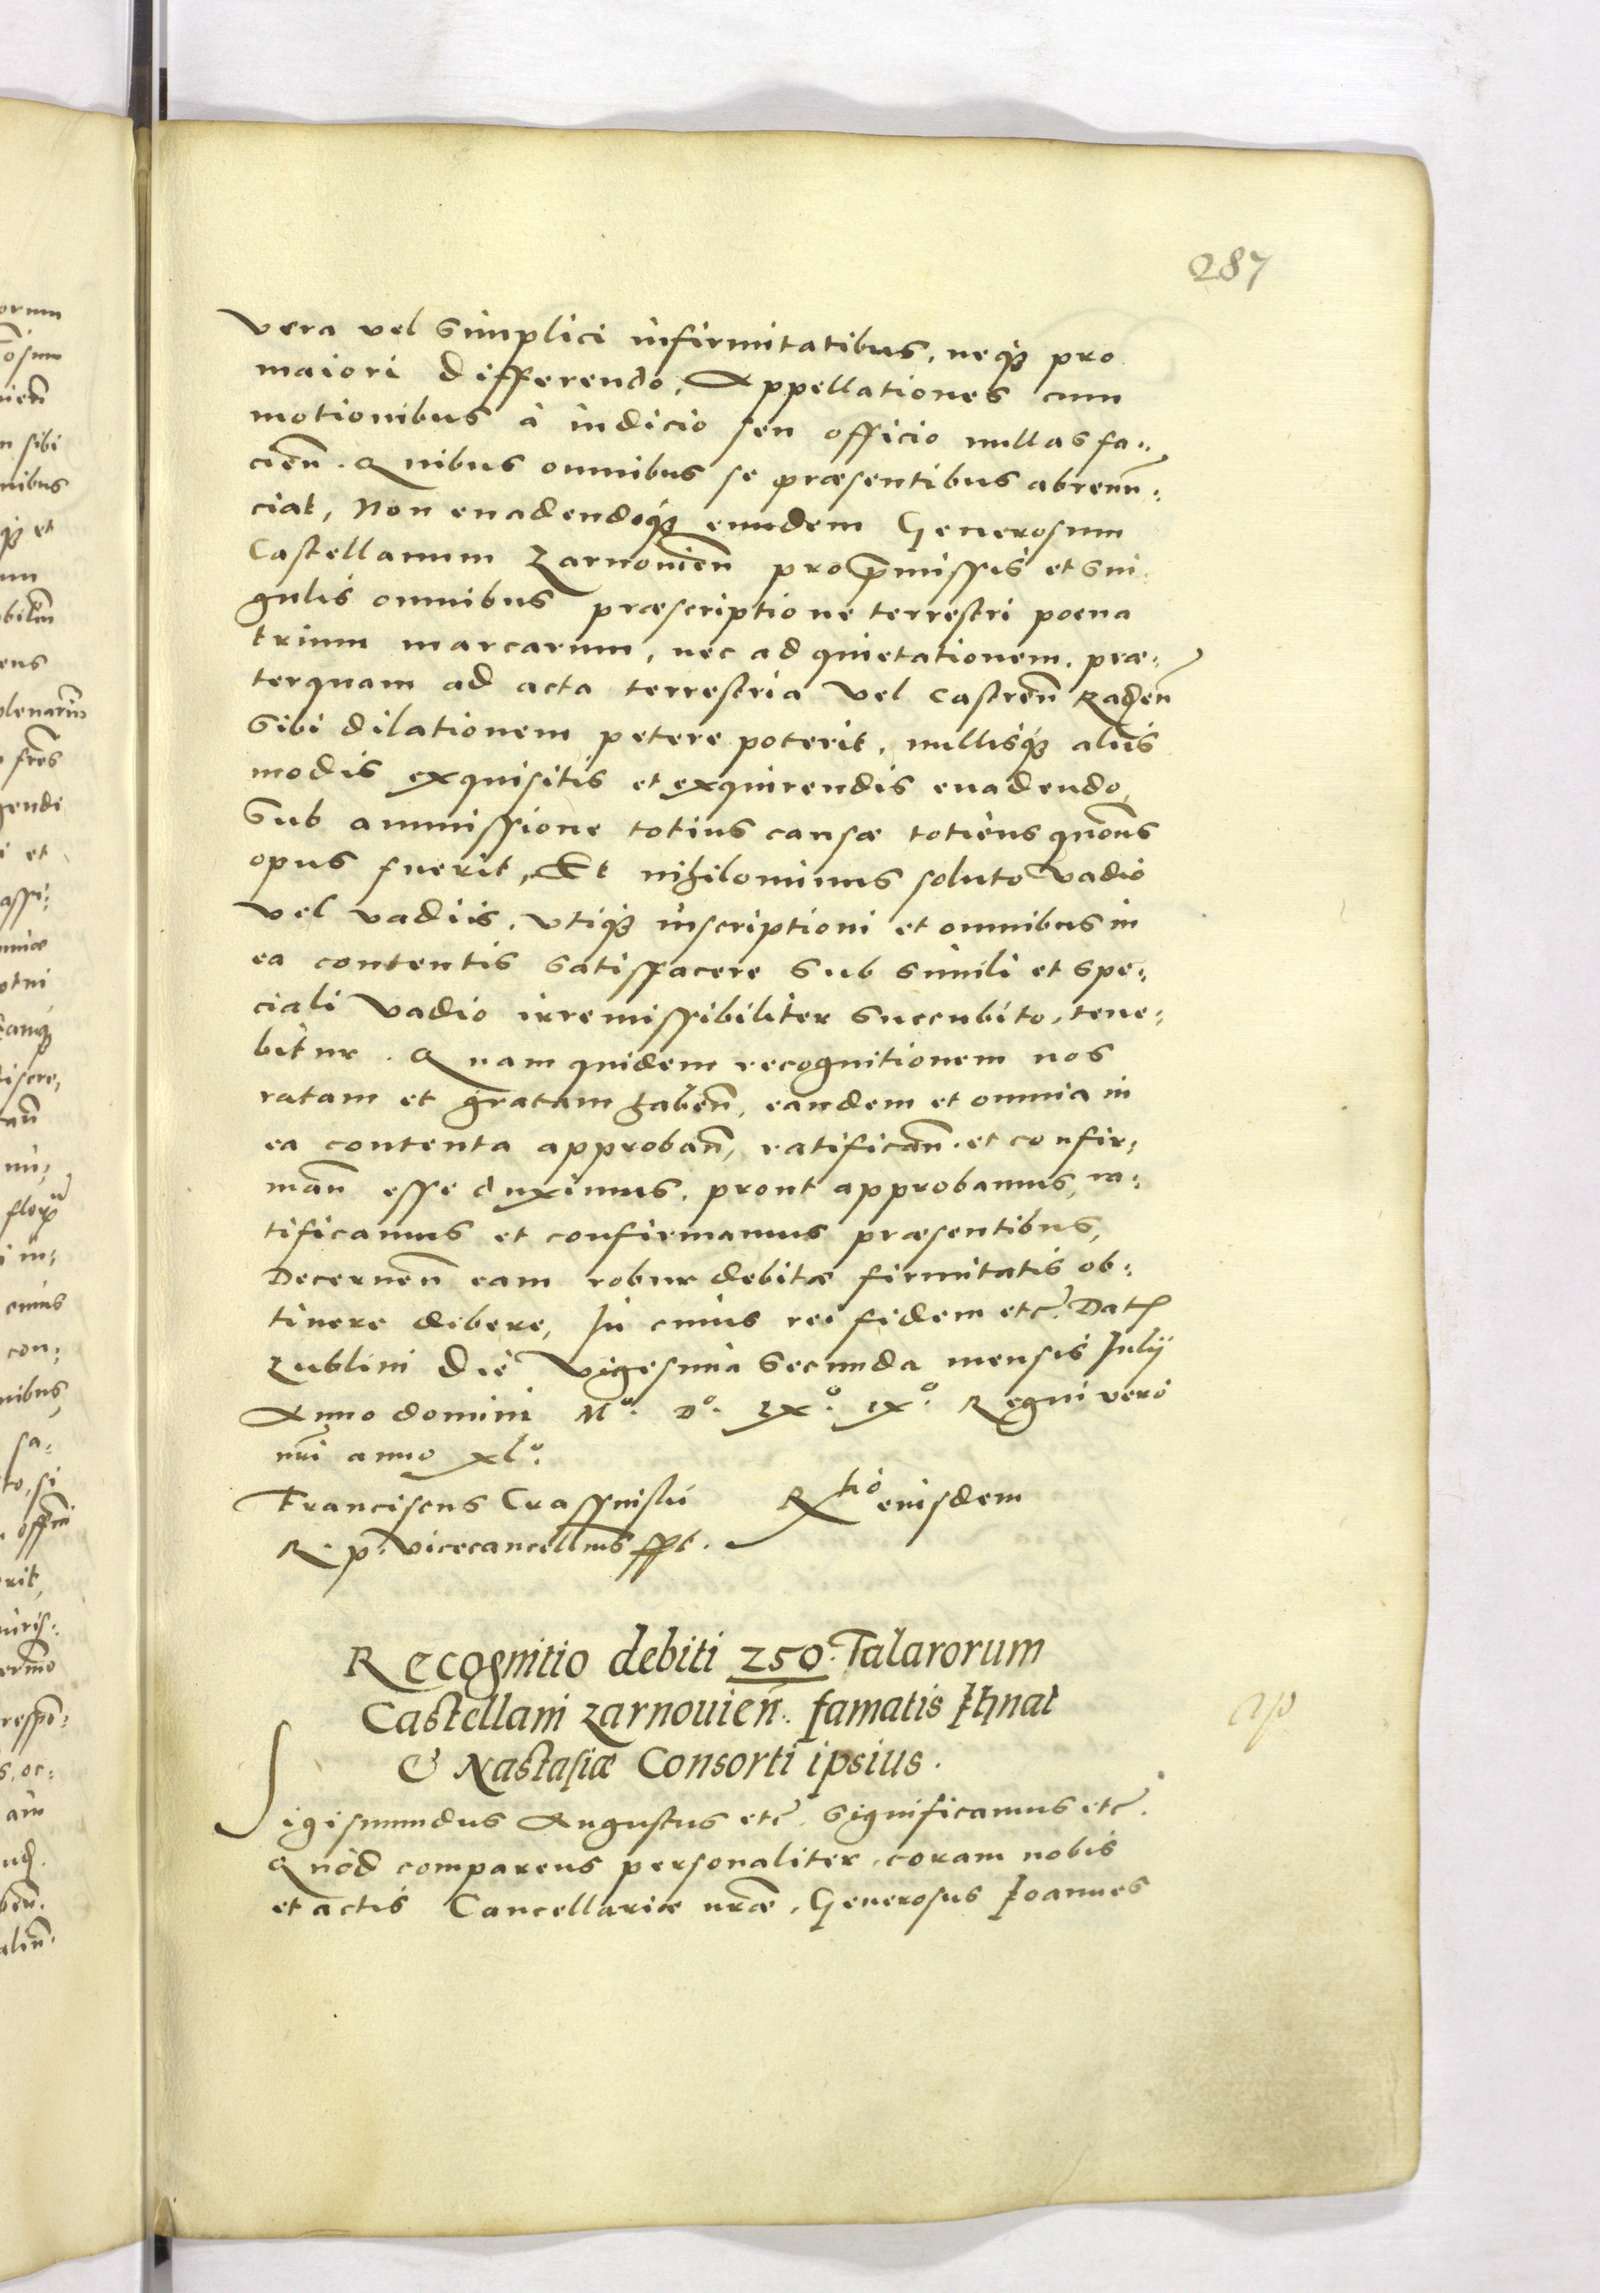 287
vera vel simplici infirmitatibus, neqz pro
maiori differendo, Appellationes cum
motionibus à iudicio seu officio nullas fa:
cien̄. Quibus omnibus se præsentibus abrenun:
ciat, Non euadendoqz eundem Generosum
Castellanum Zarnouien̄ pro p̄missis et sin
gulis omnibus præscriptione terrestri poena
trium marcarum, nec ad quietationem, præ:
terquam ad acta terrestria vel castren̄ Raden̄
sibi dilationem petere poterit, nullisqz alijs
modis exquisitis et exquirendis euadendo,
Sub ammissione totius causæ totiens quotiens
opus fuerit, Et nihilominus soluto vadio
vel vadiis, vtiqz inscriptioni et omnibus in
ea contentis satisfacere sub simili et spe:
ciali vadio irremissibiliter succubito, tene:
bitur. Quam quidem recognitionem nos
ratam et gratam haben̄, eandem et omnia in
ea contenta approban̄, ratifican̄ et confir:
man̄ esse duximus, prout approbamus, ra:
tificamus et confirmamus præsentibus,
Decernen̄ eam robur debitæ firmitatis ob:
tinere debere, In cuius rei fidem etc. Dat
Lublini die vigesima secunda mensis Julij
Anno domini Mº. Dº. LXº. IXº. Regni vero
nr̄i anno xlº.
Franciscus Crassinskii Rtio eiusdem
R. p. vicecancellarius sspt.
Recognitio debiti 250. Talarorum
Castellani Zarnouien̄. famatis Ihnat
& Nastasiæ Consorti ipsius.
ap
Sigismundus Augustus etc. significamus etc.
Quòd comparens personaliter coram nobis
et actis Cancellariæ nr̄æ, Generosus Joannes